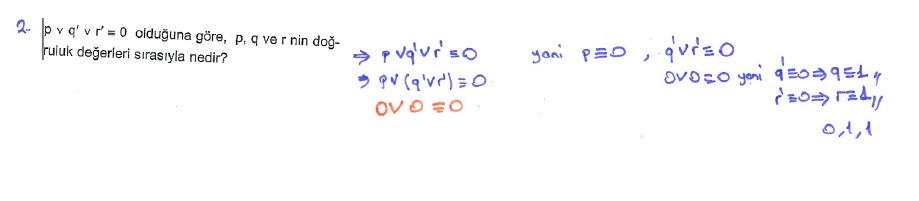 2- p v q' v r' = 0 olduğuna göre, p, q ve r nin doğ-
ruluk değerleri sırasıyla nedir?
⇒ p∨q'∨r' ≡ 0 yani p≡0 , q'∨r' ≡ 0
⇒ p∨(q'∨r') ≡ 0 0∨0≡0 yani q'≡0⇒q≡1,,
0∨0 ≡ 0 r'≡0⇒r≡1,,
0,1,1